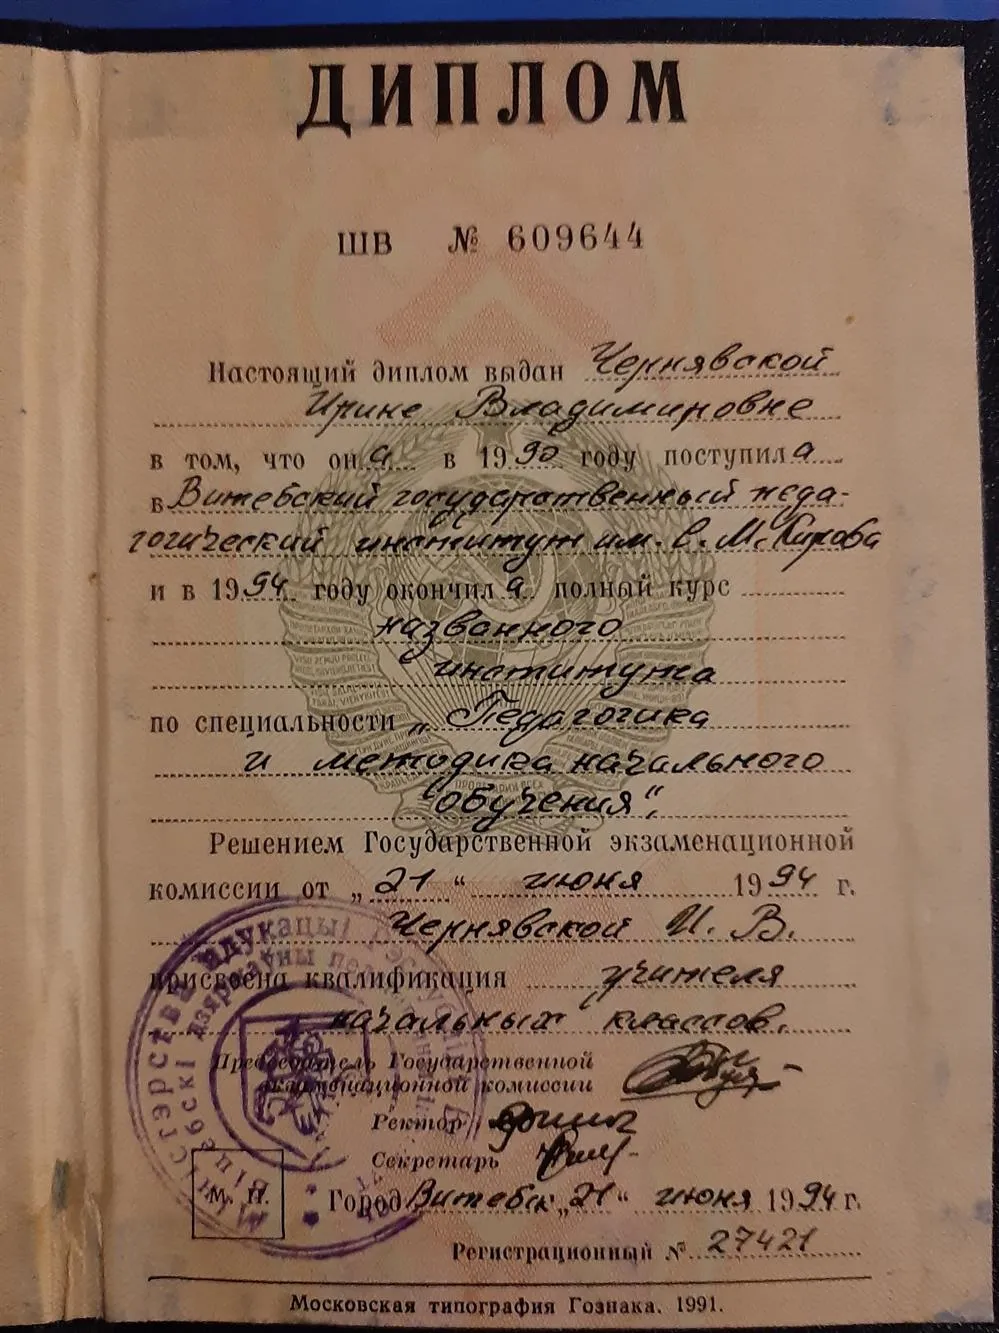 ДИПЛОМ
ШВ № 609644
Настоящий диплом выдан Чернявской
Ирине Владимировне
в том, что она в 1990 году поступила
в Витебский государственный педа-
гогический институт им. С. М. Кирова
и в 1994 году окончила полный курс
названного
института
по специальности „Педагогика
и методика начального
"обучения",
Решением Государственной экзаменационной
комиссии от „21“ июня 1994 г.
Чернявской И. В.
присвоена квалификация учителя
начальных классов.
Председатель Государственной
экзаменационной комиссии
Ректор
Секретарь
М. П.
Город Витебск „21“ июня 1994 г.
Регистрационный № 27421
Московская типография Гознака. 1991.